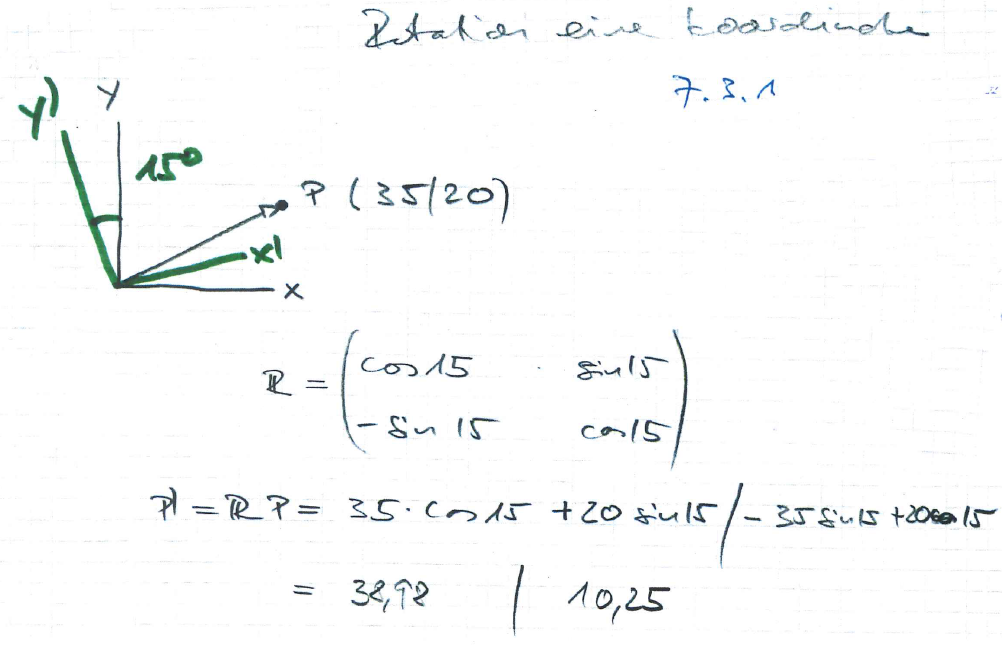 Rotation eine Koordinate
7.3.1
y' y
15°
P (35/20)
x'
x
R = (cos 15 sin 15
-sin 15 cos 15)
P' = R P = 35 · cos 15 + 20 sin 15 / - 35 sin 15 + 20 cos 15
= 38,98 / 10,25